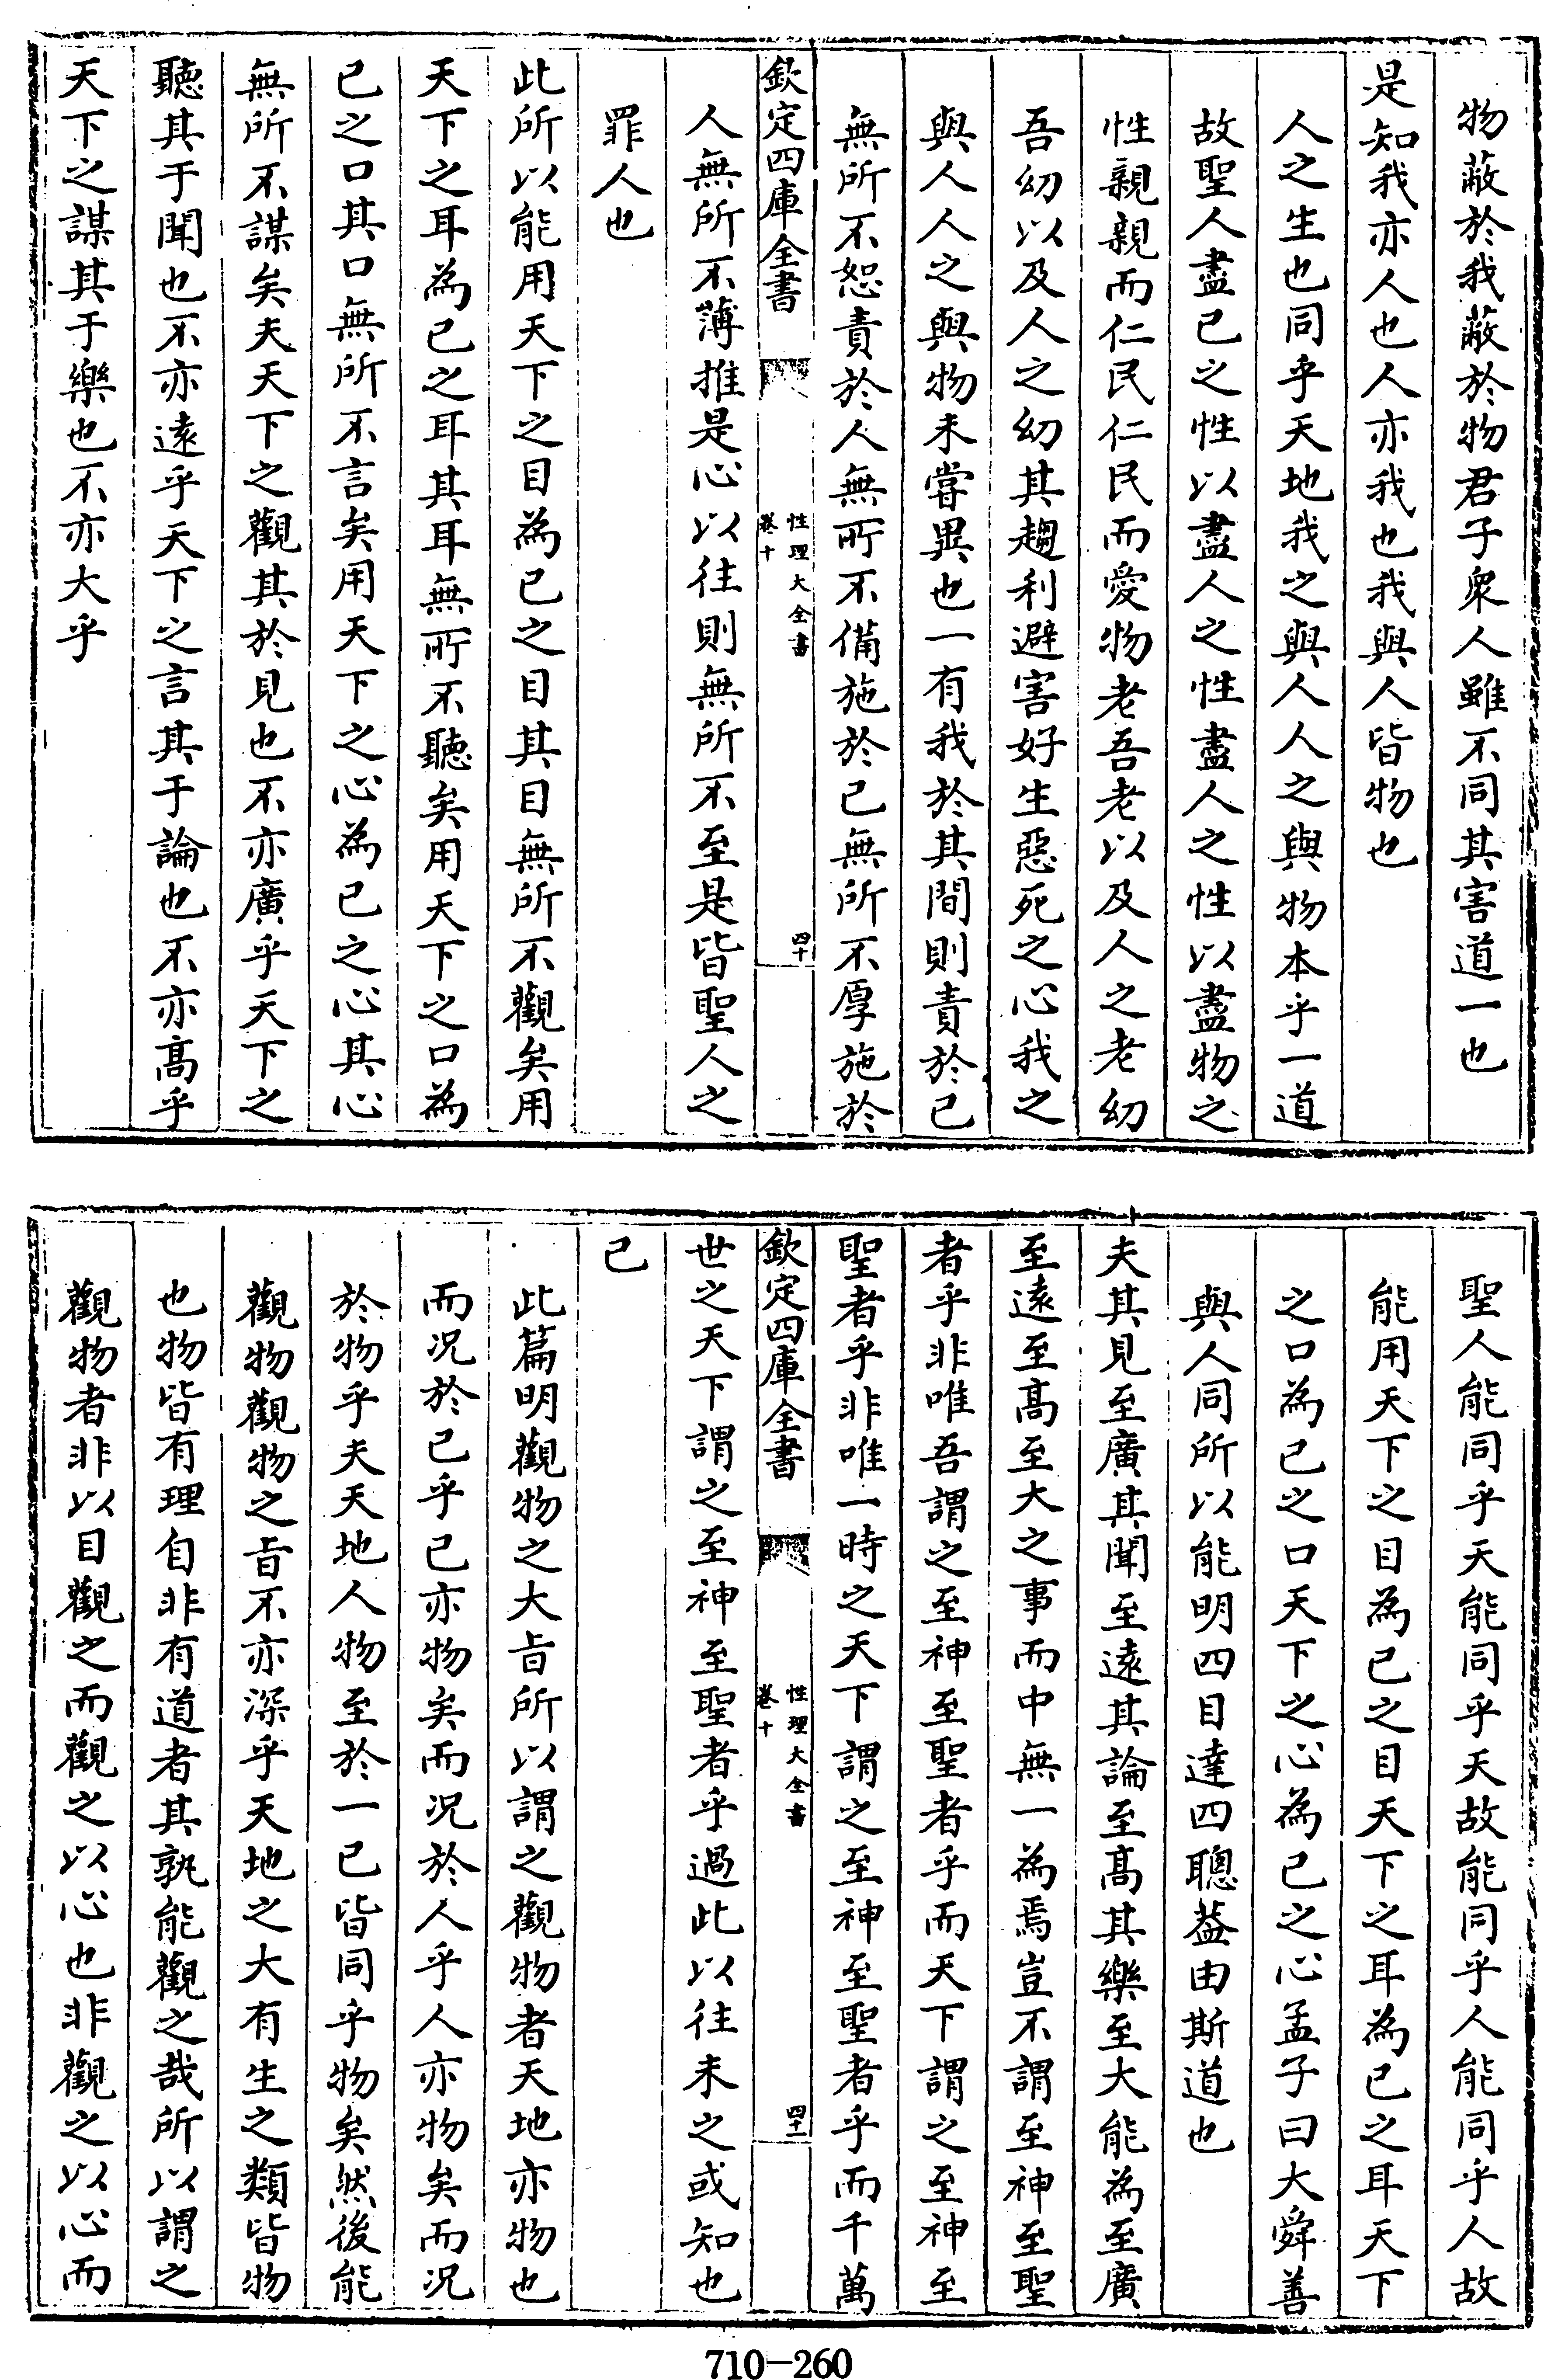 物蔽於我蔽於物君子衆人雖不同其害道一也
是知我亦人也人亦我也我與人皆物也
人之生也同乎天地我之與人人之與物本乎一道
故聖人盡己之性以盡人之性盡人之性以盡物之
性親親而仁民仁民而愛物老吾老以及人之老幼
吾幼以及人之幼其趨利避害好生惡死之心我之
與人人之與物未嘗異也一有我於其間則責於己
無所不恕責於人無所不備施於己無所不厚施於
欽定四庫全書
性理大全書
卷十
四十
人無所不薄推是心以往則無所不至是皆聖人之
罪人也
此所以能用天下之目為己之目其目無所不觀矣用
天下之耳為己之耳其耳無所不聽矣用天下之口為
己之口其口無所不言矣用天下之心為己之心其心
無所不謀矣夫天下之觀其於見也不亦廣乎天下之
聽其于聞也不亦遠乎天下之言其于論也不亦高乎
天下之謀其于樂也不亦大乎
聖人能同乎天能同乎天故能同乎人能同乎人故
能用天下之目為己之目天下之耳為己之耳天下
之口為己之口天下之心為己之心孟子曰大舜善
與人同所以能明四目達四聰葢由斯道也
夫其見至廣其聞至遠其論至高其樂至大能為至廣
至遠至高至大之事而中無一為焉豈不謂至神至聖
者乎非唯吾謂之至神至聖者乎而天下謂之至神至
聖者乎非唯一時之天下謂之至神至聖者乎而千萬
欽定四庫全書
性理大全書
卷十
四十一
世之天下謂之至神至聖者乎過此以往未之或知也
已
此篇明觀物之大旨所以謂之觀物者天地亦物也
而况於己乎己亦物矣而况於人乎人亦物矣而况
於物乎夫天地人物至於一己皆同乎物矣然後能
觀物觀物之旨不亦深乎天地之大有生之類皆物
也物皆有理自非有道者其孰能觀之哉所以謂之
觀物者非以目觀之而觀之以心也非觀之以心而
710-260